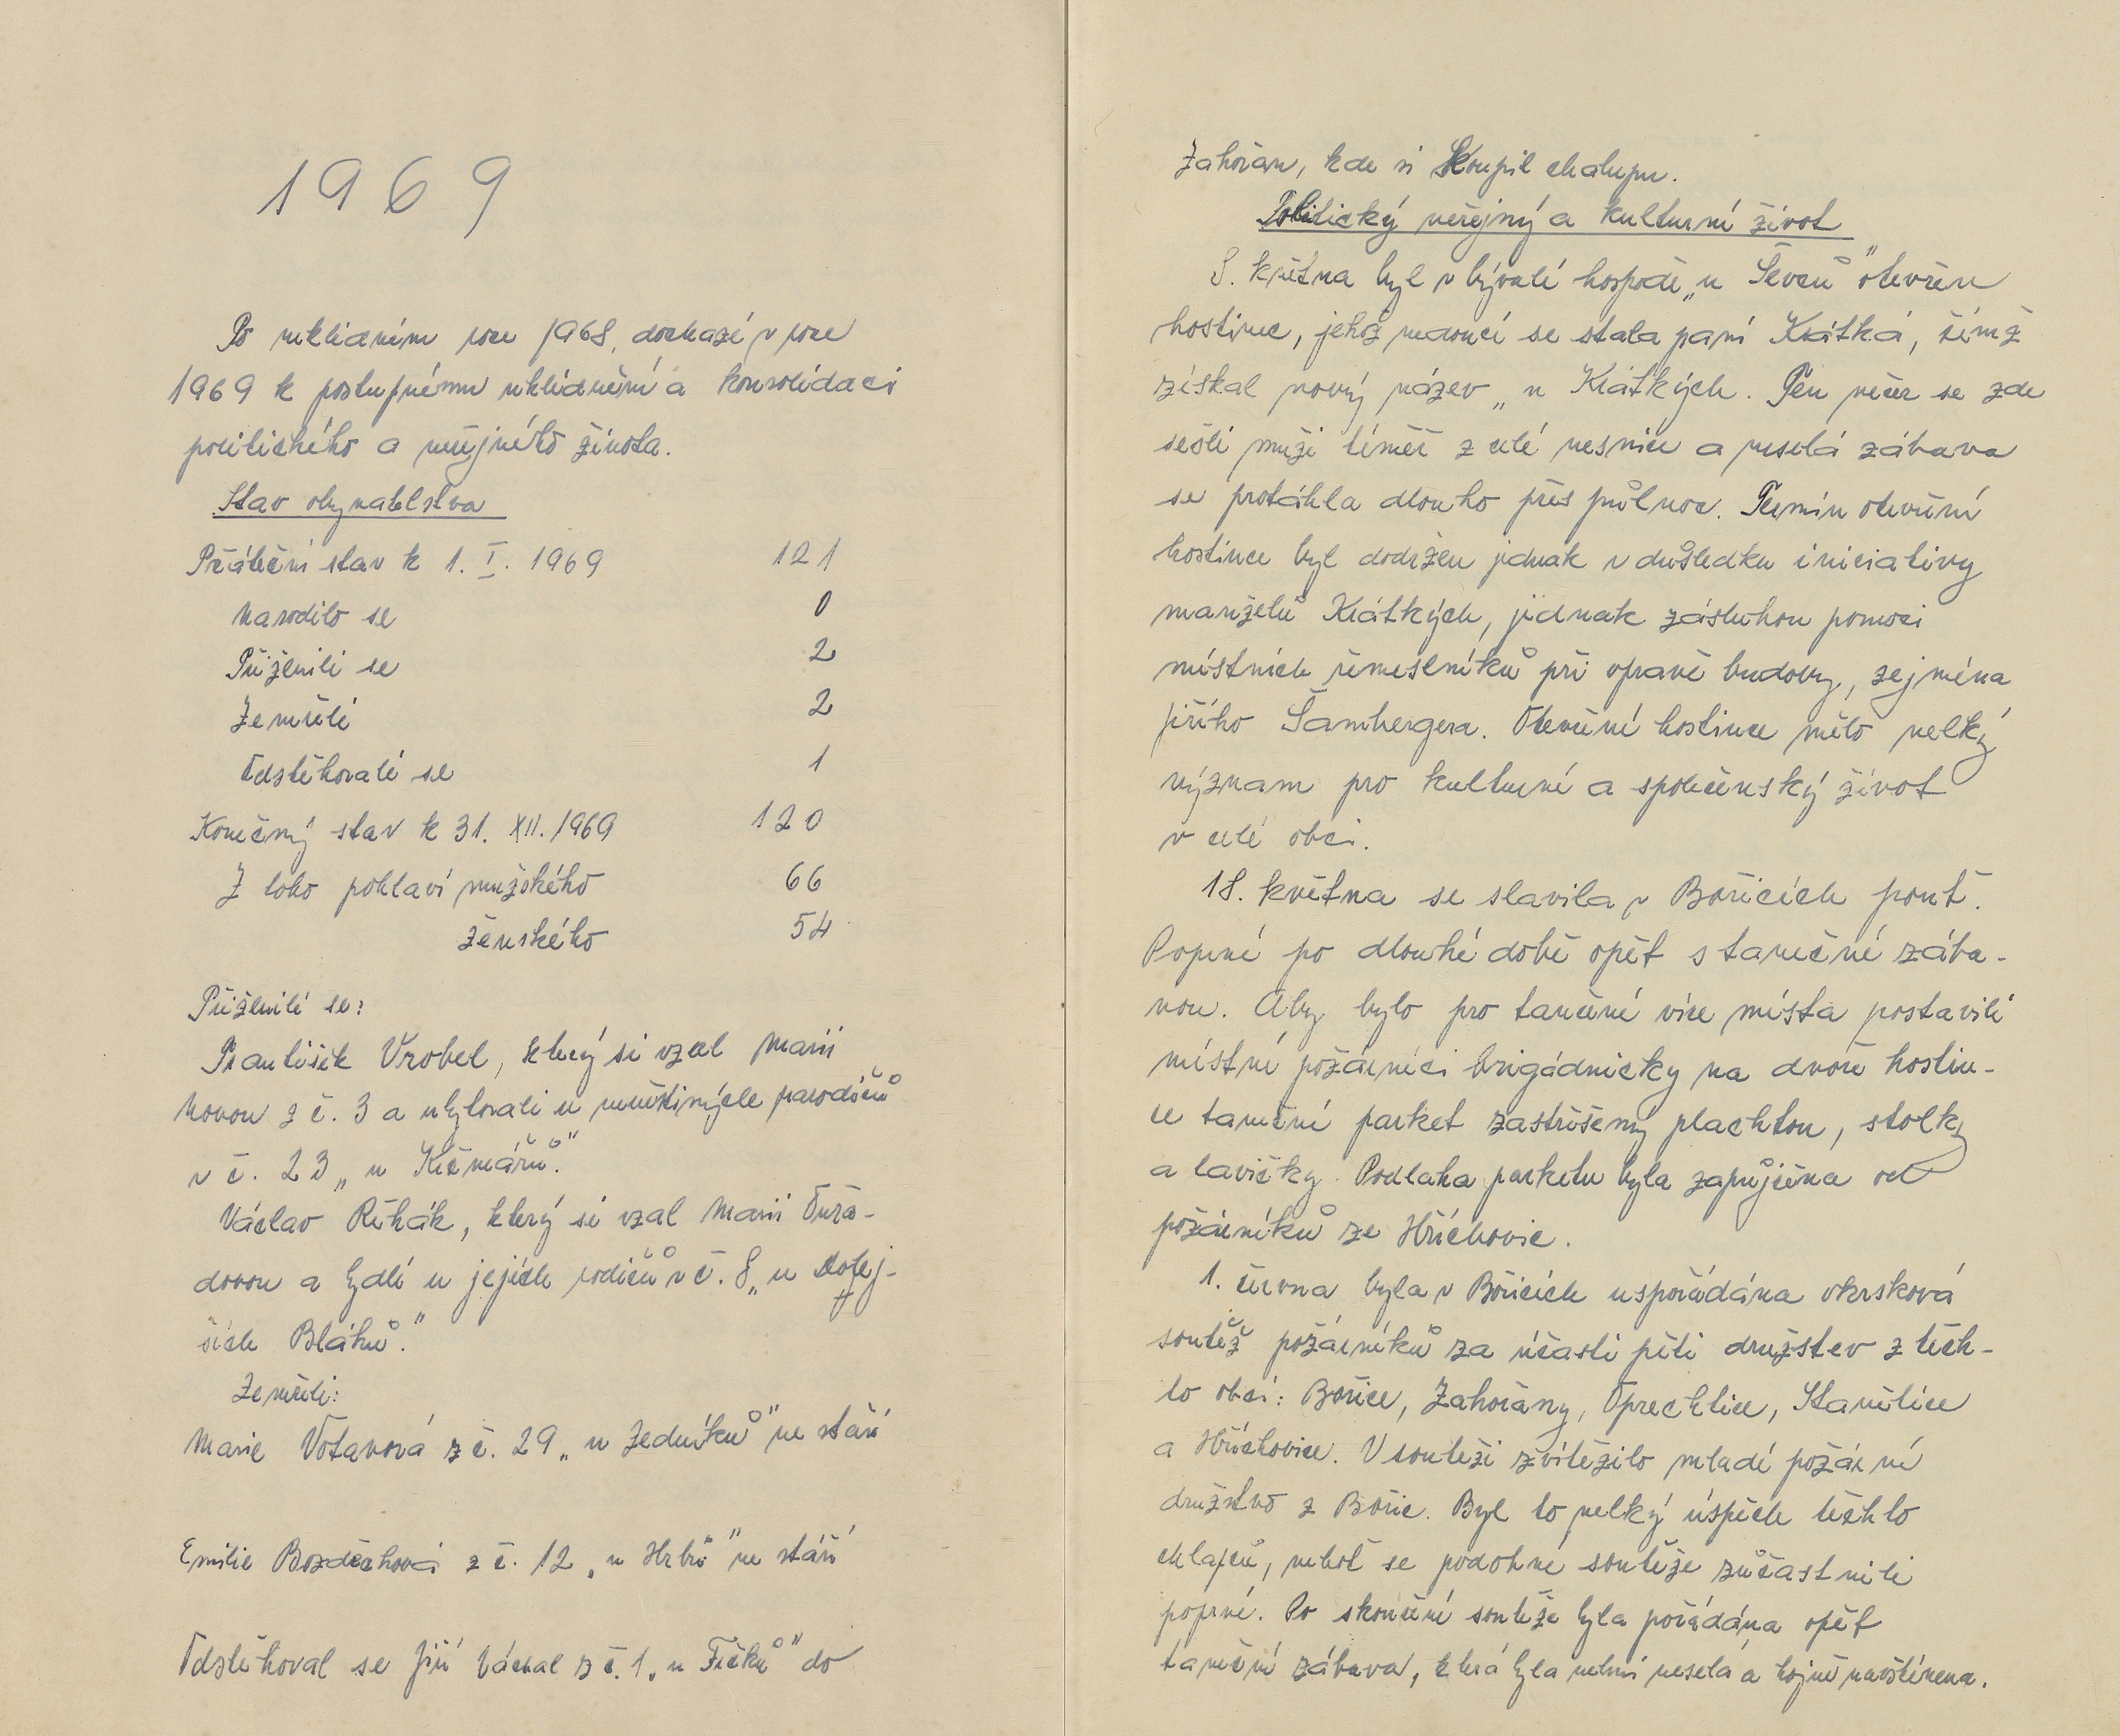 1969
Po neklidném roce 1968, dochází v roce
1969 k postupnému uklidnění a konsolidaci
politického a veřejného života.
Stav obyvatelstva
Počáteční stav k 1. I. 1969 121
Narodilo se 0
Přiženili se 2
Zemřeli 2
Odstěhovali se 1
Konečný stav k 31. XII. 1969 120
Z toho pohlaví mužského 66
ženského 54
Přiženili se:
František Vrobel, který si vzal Marii
z č. 3 a ubytovali u prarodičů
v č. 23 „u Krčmářů."
Václav Řehák, který si vzal Marii Ouřa-
dovou a bydlí u jejích rodičů v č. 8 „u Dolej-
ších Bláhů."
Zemřeli:
Marie Votavová z č. 29 „u Zedníků" ve stáří
Emilie Bozděchová z č. 12 „u Hrbů" ve stáří
Odstěhoval se Jiří Váchal z č. 1 „u Fičků" do
Zahořan, kde si koupil chalupu.
Politický veřejný a kulturní život
8. května byl v bývalé hospodě „u Ševců" otevřen
hostinec, jehož vedoucí se stala paní Krátká, čímž
získal nový název „u Krátkých. Ten večer se zde
sešli muži téměř z celé vesnice a veselá zábava
se protáhla dlouho přes půlnoc. Termín otevření
hostince byl dodržen jednak v důsledku iniciativy
manželů Krátkých, jednak zásluhou pomoci
místních řemeslníků při opravě budovy, zejména
Jiřího Šambergera. Otevření hostince mělo velký
význam pro kulturní a společenský život
v celé obci.
18. května se slavila v Bořicích pouť.
Poprvé po dlouhé době opět s taneční zába-
vou. Aby bylo pro tančení více místa postavili
místní požárníci brigádnicky na dvoře hostin-
ce taneční parket zastřešený plachtou, stolky
a lavičky. Podlaha parketu byla zapůjčena od
požárníků ze Hříchovic.
1. června byla v Bořicích uspořádána okrsková
soutěž požárníků za účasti pěti družstev z těch-
to obcí: Bořice, Zahořany, Oprechtice, Stanětice
a Hříchovice. V soutěži zvítězilo mladé požární
družstvo z Bořic. Byl to velký úspěch těchto
chlapců, neboť se podobné soutěže zúčastnili
poprvé. Po skončení soutěže byla pořádána opět
taneční zábava, která byla velmi veselá a hojně navštívena.